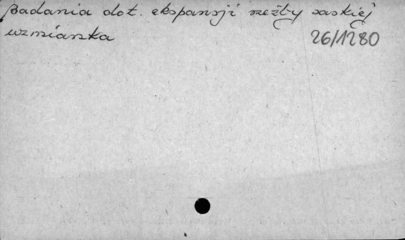 Badania dot. ekspansji rzeźby saskiej
wzmianka
26/1280